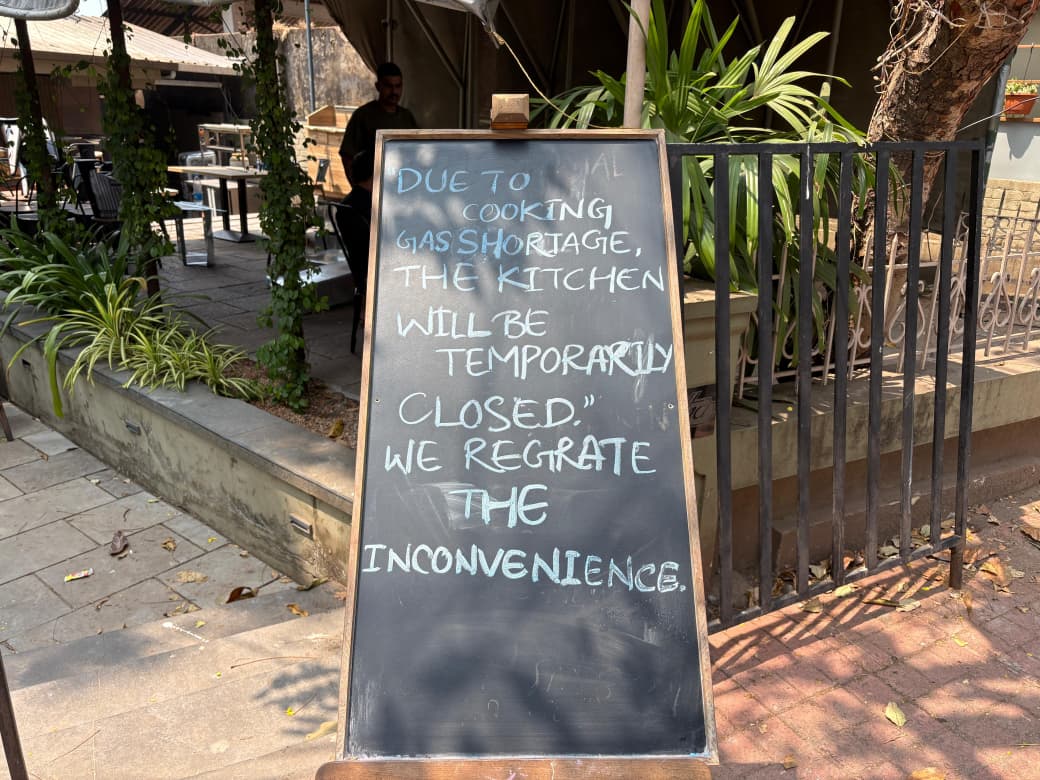 DUE TO
COOKING
GAS SHORTAGE,
THE KITCHEN
WILL BE
TEMPORARILY
CLOSED."
WE REGRATE
THE
INCONVENIENCE.